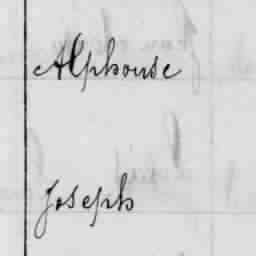 Alphonse
Joseph